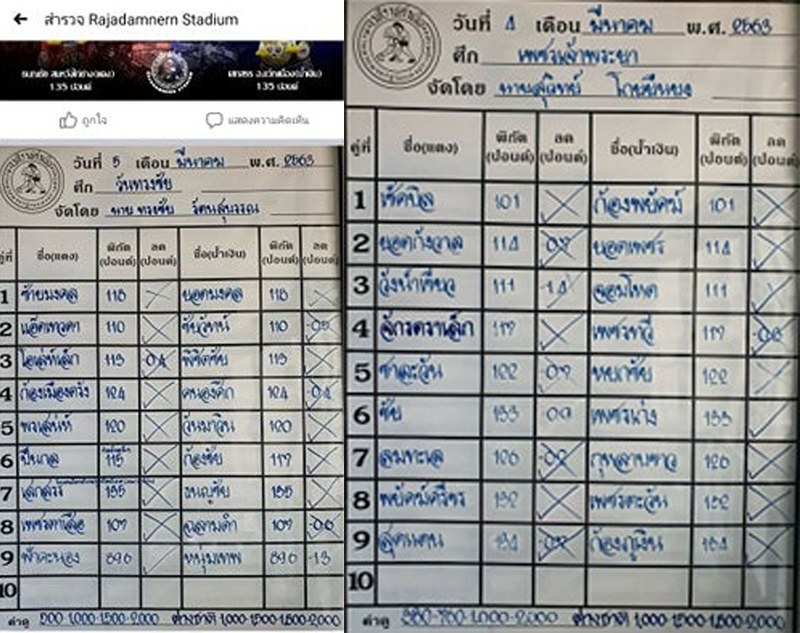 สำรวจ Rajadamnern Stadium
135 ปอนด์
135 ปอนด์
ถูกใจ
แสดงความคิดเห็น
วันที่ 5 เดือน มีนาคม พ.ศ. 2563
ศึก วันทรงชัย
จัดโดย นาย ทรงชัย รัตนสุบรรณ
คู่ที่ ชื่อ(แดง) พิกัด(ปอนด์) ลด(ปอนด์) ชื่อ(น้ำเงิน) พิกัด(ปอนด์) ลด(ปอนด์)
1 ชายมงคล 118 ยอดมงคล 118
2 แอ๊ดเทวดา 110 ชัยวัฒน์ 110
3 โอเล่ห์เล็ก 115 04 พิชิตชัย 115
4 ก้องเมืองตรัง 124 คนองศึก 124
5 พรเสน่ห์ 120 วันมาวิน 120
6 ปืนกล 115 ก้องชัย 117
7 เสกสรร 135 ธนญชัย 135
8 107 ฉลามดำ 107
9 หนุ่มเทพ
10
ค่าดู 500-1,000-1,500-2,000 ต่างชาติ 1,000-1,500-1,800-2,000
วันที่ 4 เดือน มีนาคม พ.ศ. 2563
ศึก เพชรเจ้าพระยา
จัดโดย นายสุวิทย์
คู่ที่ ชื่อ(แดง) พิกัด(ปอนด์) ลด(ปอนด์) ชื่อ(น้ำเงิน) พิกัด(ปอนด์) ลด(ปอนด์)
1 เช็คบิล 101 ก้องพยัคฆ์ 101
2 ยอดกังวาล 114 ยอดเพชร 114
3 วังน้ำเขียว 111 14 จอมโหด 111
4 จักรตราเล็ก 117 เพชรทวี 117
5 ชาละวัน 122 หยกชัย 122
6 ชัย 133 เพชรเก่ง 133
7 ลมทะเล 126 กุหลาบขาว 126
8 132 เพชรตะวัน 132
9 สุดแดน 134 ก้องภูเงิน 134
10
ค่าดู ต่างชาติ 1,000-1,500-1,800-2,000